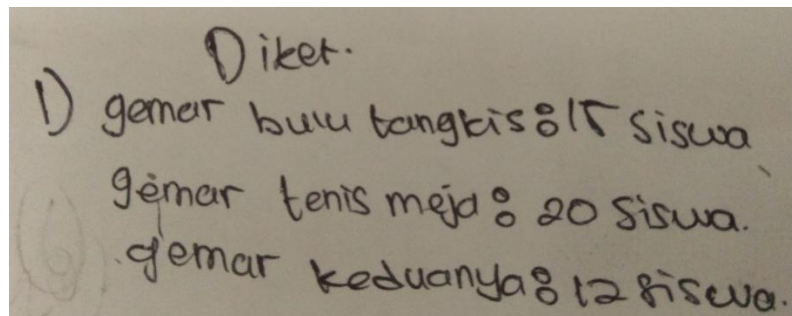 Diket.
1) gemar bulu tangkis : 15 siswa
gemar tenis meja : 20 siswa.
gemar keduanya : 12 siswa.